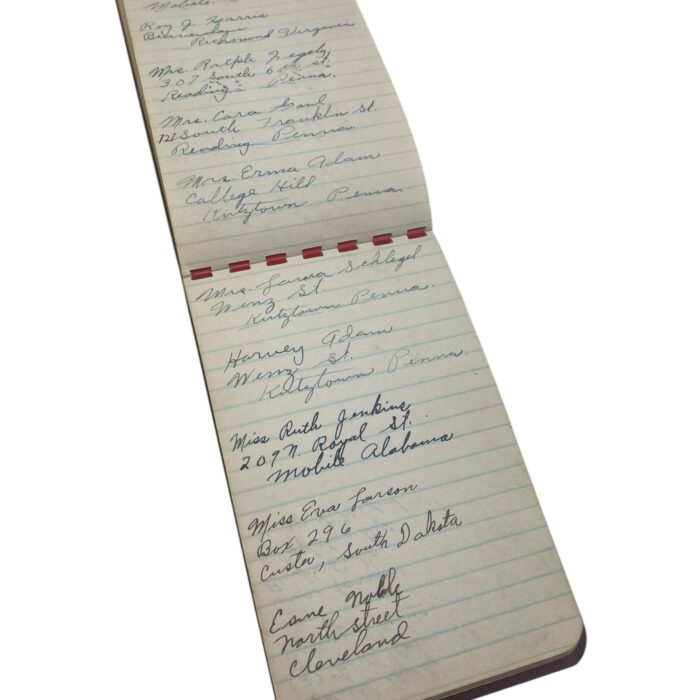 Mobile
Roy J. Harris
Richmond Virginia
Mrs. Ralph Negely
307 South 6th St.
Reading Penna.
Mrs. Cora Gaul
121 South Franklin St.
Reading Penna.
Mrs. Erma Adam
College Hill
Kutztown Penna
Mrs. Laura Schlegel
Wenz St.
Kutztown Penna.
Harvey Adam
Wenz St.
Kutztown Penna.
Miss Ruth Jenkins
209 N. Royal St.
Mobile Alabama
Miss Eva Larson
Box 296
Custer, South Dakota
Esme Noble
North Street
Cleveland